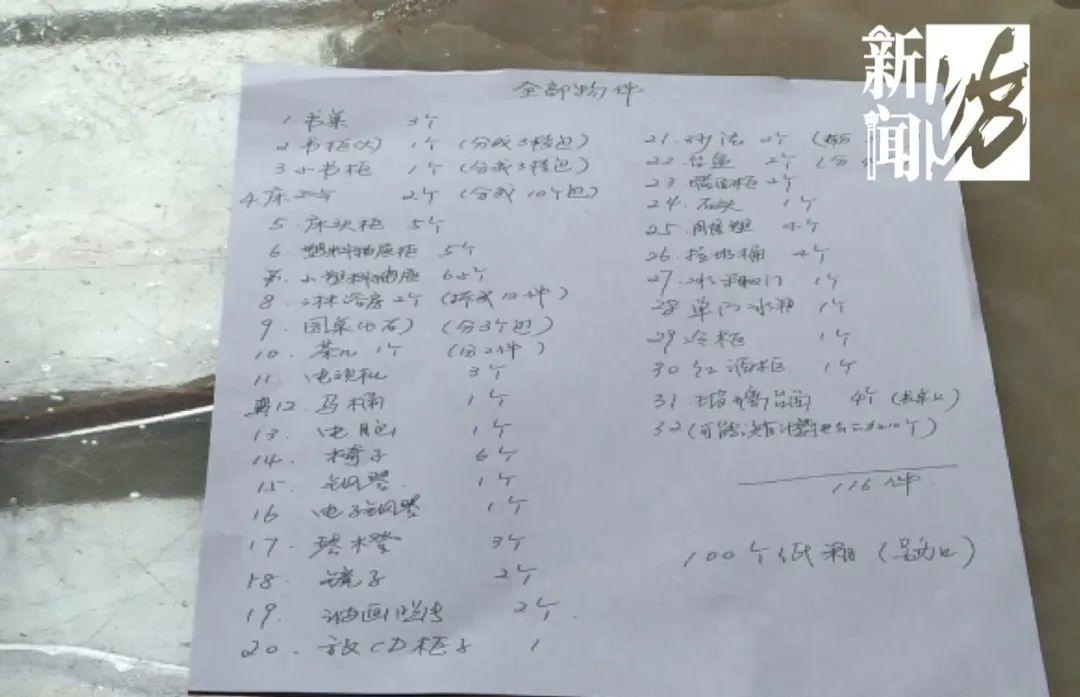 新闻坊
全部物件
1. 书桌 3个
2. 书柜(大) 1个 (分成3样包)
3. 小书柜 1个 (分成3样包)
4. 床 2个 (分成10个包)
5. 床头柜 5个
6. 塑料抽屉柜 5个
小塑料抽屉 6个
8. 淋浴房 2个 (拆成10件)
9. 圆桌(大石) (分3个包)
10. 茶几 1个 (分2件)
11. 电视机 3个
12 马桶 1个
13. 电脑 1个
14. 椅子 6个
15. 钢琴 1个
16. 电子钢琴 1个
17. 琴凳 3个
18. 镜子 2个
19. 油画 2个
20. 放CD柜子 1
21. 沙法 2个
22. 2个 (分
23. 2个
24. 石头 1个
25. 个
26. 垃圾桶 4个
27. 冰箱 门 1个
28 单门冰箱 1个
29 冷柜 1个
30 红酒柜 1个
31. 玻璃台面 4个
32 (可能没有计算 个)
116件
100个纸箱